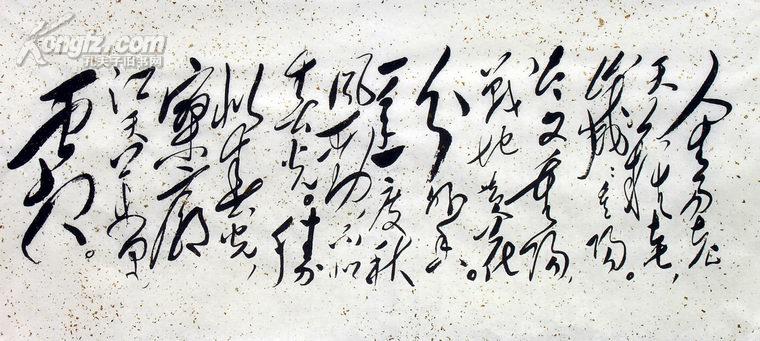 人生易老
天難老，
歲歲重陽。
今又重陽，
戰地黄花
分外香。
一年一度秋
風勁，不似
春光。勝
似春光，
寥廓
江天萬里
霜。
Kongfz.com
孔夫子旧书网